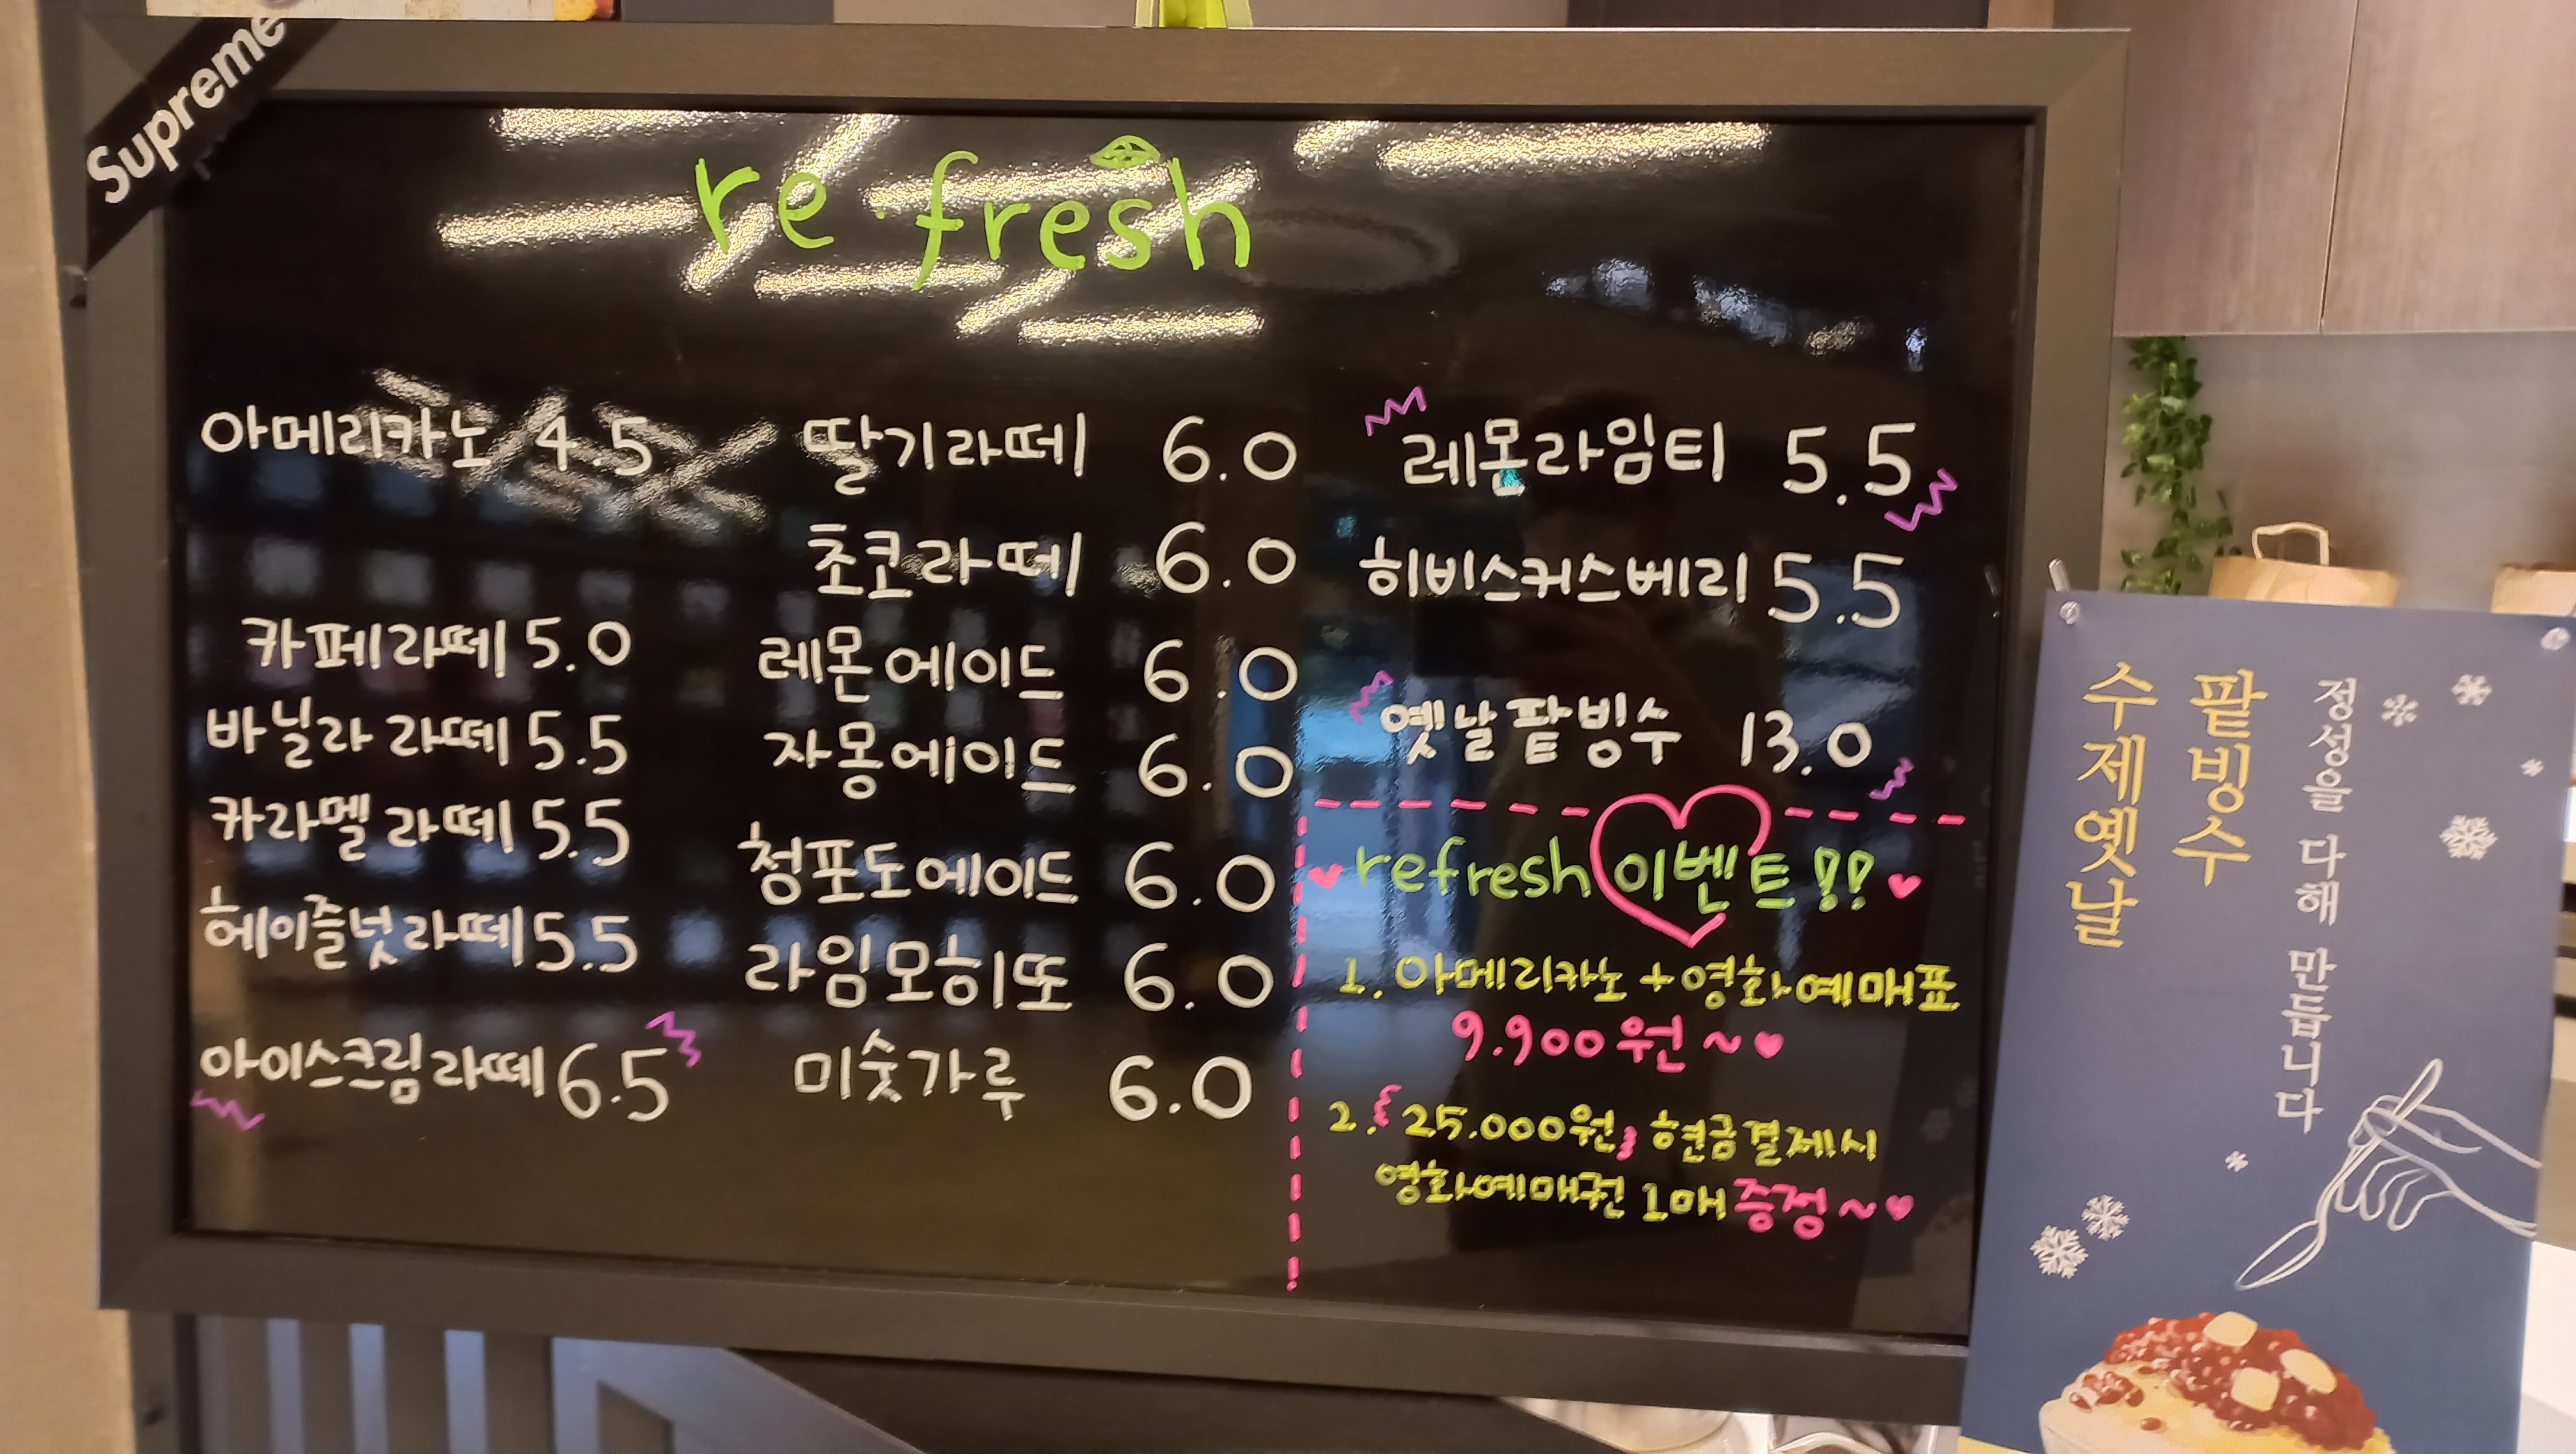 Supreme
re·fresh
아메리카노 4.5
카페라떼 5.0
바닐라 라떼 5.5
카라멜 라떼 5.5
헤이즐넛 라떼 5.5
아이스크림 라떼 6.5
딸기라떼 6.0
초코라떼 6.0
레몬에이드 6.0
자몽에이드 6.0
청포도에이드 6.0
라임모히또 6.0
미숫가루 6.0
레몬라임티 5.5
히비스커스베리 5.5
옛날팥빙수 13.0
refresh 이벤트!!
1. 아메리카노 + 영화예매표
9.900원~
2. 25.000원 현금결제시
영화예매권 1매 증정~
정성을 다해 만듭니다
팥빙수
수제옛날